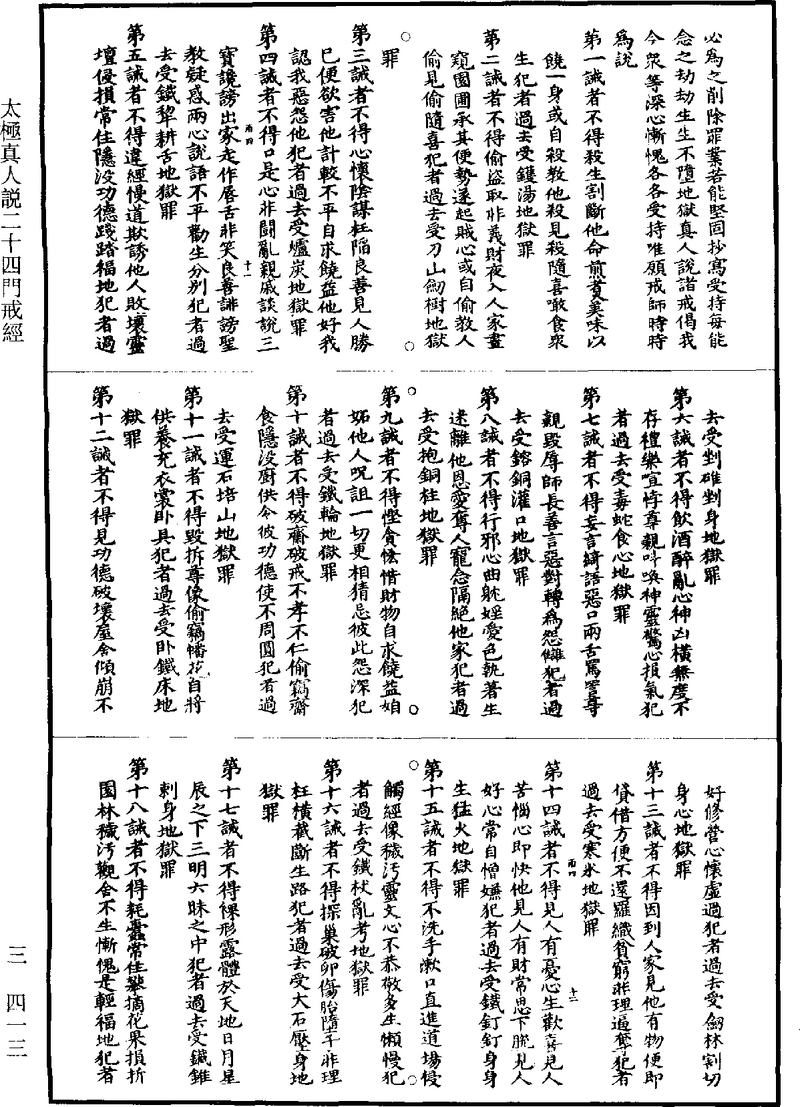 必為之削除罪業若能堅固抄寫受持每能
念之劫劫生生不墮地獄真人說諸戒偈我
今眾等深心慚愧各各受持唯願戒師時時
為說
第一誡者不得殺生割斷他命煎煑美味以
饒一身或自殺教他殺見殺隨喜噉食眾
生犯者過去受鑊湯地獄罪
第二誡者不得偷盜取非義財夜入人家晝
窺園圃承其便勢遂起賊心或自偷教人
偷見偷隨喜犯者過去受刀山劒樹地獄
罪
第三誡者不得心懷陰謀枉陷良善見人勝
已便欲害他計較不平自求饒益他好我
認我惡怨他犯者過去受爐炭地獄罪
第四誡者不得口是心非鬪亂親戚談說三
寶讒謗出家走作唇舌非笑良善誹謗聖
教疑惑兩心說語不平勸生分別犯者過
去受鐵犂耕舌地獄罪
第五誡者不得違經慢道欺誘他人敗壞靈
壇侵損常住隱沒功德踐踏福地犯者過
去受剉碓剉身地獄罪
第六誡者不得飲酒醉亂心神凶橫無度不
存禮樂喧悖尊親叫喚神靈驚心損氣犯
者過去受毒蛇食心地獄罪
第七誡者不得妄言綺語惡口兩舌罵詈尊
親毀辱師長善言惡對轉為怨讎犯者過
去受鎔銅灌口地獄罪
第八誡者不得行邪心曲躭婬愛色執著生
迷離他恩愛奪人寵念隔絕他家犯者過
去受抱銅柱地獄罪
第九誡者不得慳貪恡惜財物自求饒益妬
妬他人呪詛一切更相猜忌彼此怨深犯
者過去受鐵輪地獄罪
第十誡者不得破齋破戒不孝不仁偷竊齋
食隱沒廚供令彼功德使不周圓犯者過
去受運石培山地獄罪
第十一誡者不得毀折尊像偷竊幡花自將
供養充衣裳卧具犯者過去受卧鐵床地
獄罪
第十二誡者不得見功德破壞屋舍傾崩不
好修營心懷虛過犯者過去受劒林割切
身心地獄罪
第十三誡者不得因到人家見他有物便即
貸借方便不還羅織貧窮非理逼奪犯者
過去受寒氷地獄罪
第十四誡者不得見人有憂心生歡喜見人
苦惱心即快他見人有財常思下脫見人
好心常自憎嫌犯者過去受鐵釘釘身身
生猛火地獄罪
第十五誡者不得不洗手漱口直進道場侵
觸經像穢汚靈文心不恭敬多生懶慢犯
者過去受鐵杖亂考地獄罪
第十六誡者不得探巢破卵傷胎墮子非理
枉橫截斷生路犯者過去受大石壓身地
獄罪
第十七誡者不得倮形露體於天地日月星
辰之下三明六昧之中犯者過去受鐵錐
刺身地獄罪
第十八誡者不得耗蠹常住攀摘花果損折
園林穢汚觀舍不生慚愧是輕福地犯者
雨四
十一
雨四
十二
太極真人説二十四門戒經
三
四一三